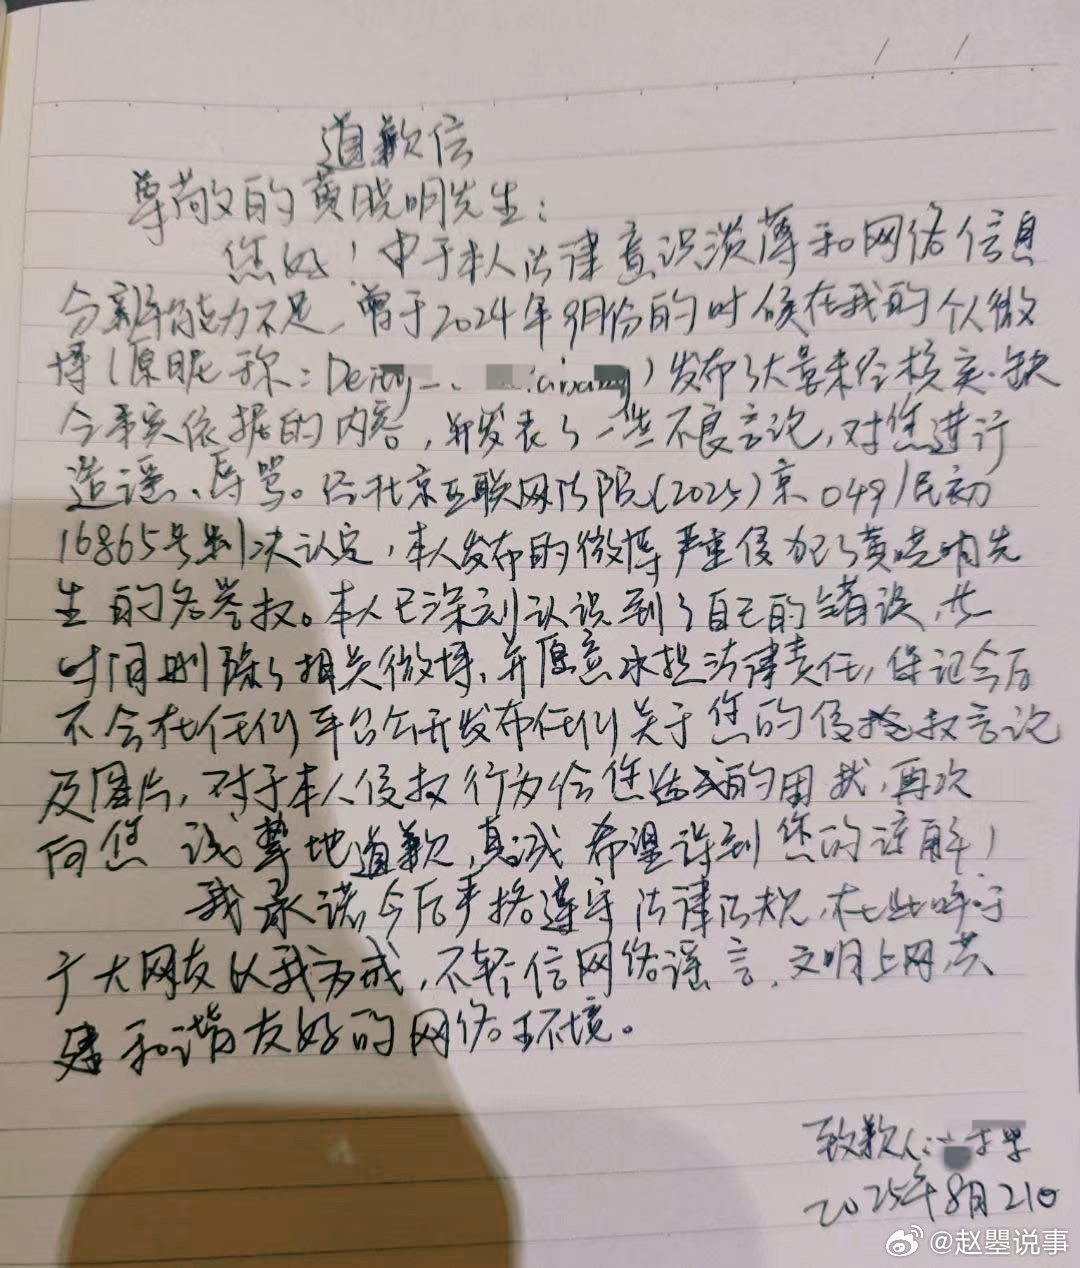 道歉信
尊敬的黄晓明先生：
您好！由于本人法律意识淡薄和网络信息
分辨能力不足，曾于2024年9月份的时候在我的个人微
博（原昵称：Deity_）发布了大量未经核实、缺
令事实依据的内容，并发表了一些不良言论，对您进行
造谣、辱骂。经北京互联网法院（2025）京0491民初
16865号判决认定，本人发布的微博严重侵犯了黄晓明先
生的名誉权。本人已深刻认识到了自己的错误，此
时间删除了相关微博，并愿意承担法律责任，保证今后
不会在任何平台公开发布任何关于您的侵权言论
及图片，对于本人侵权行为给您造成的困扰，再次
向您诚挚地道歉，真诚希望得到您的谅解！
我承诺今后严格遵守法律法规，在此呼吁
广大网友以我为戒，不轻信网络谣言，文明上网共
建和谐友好的网络环境。
致歉人：
2025年8月21日
@赵曌说事